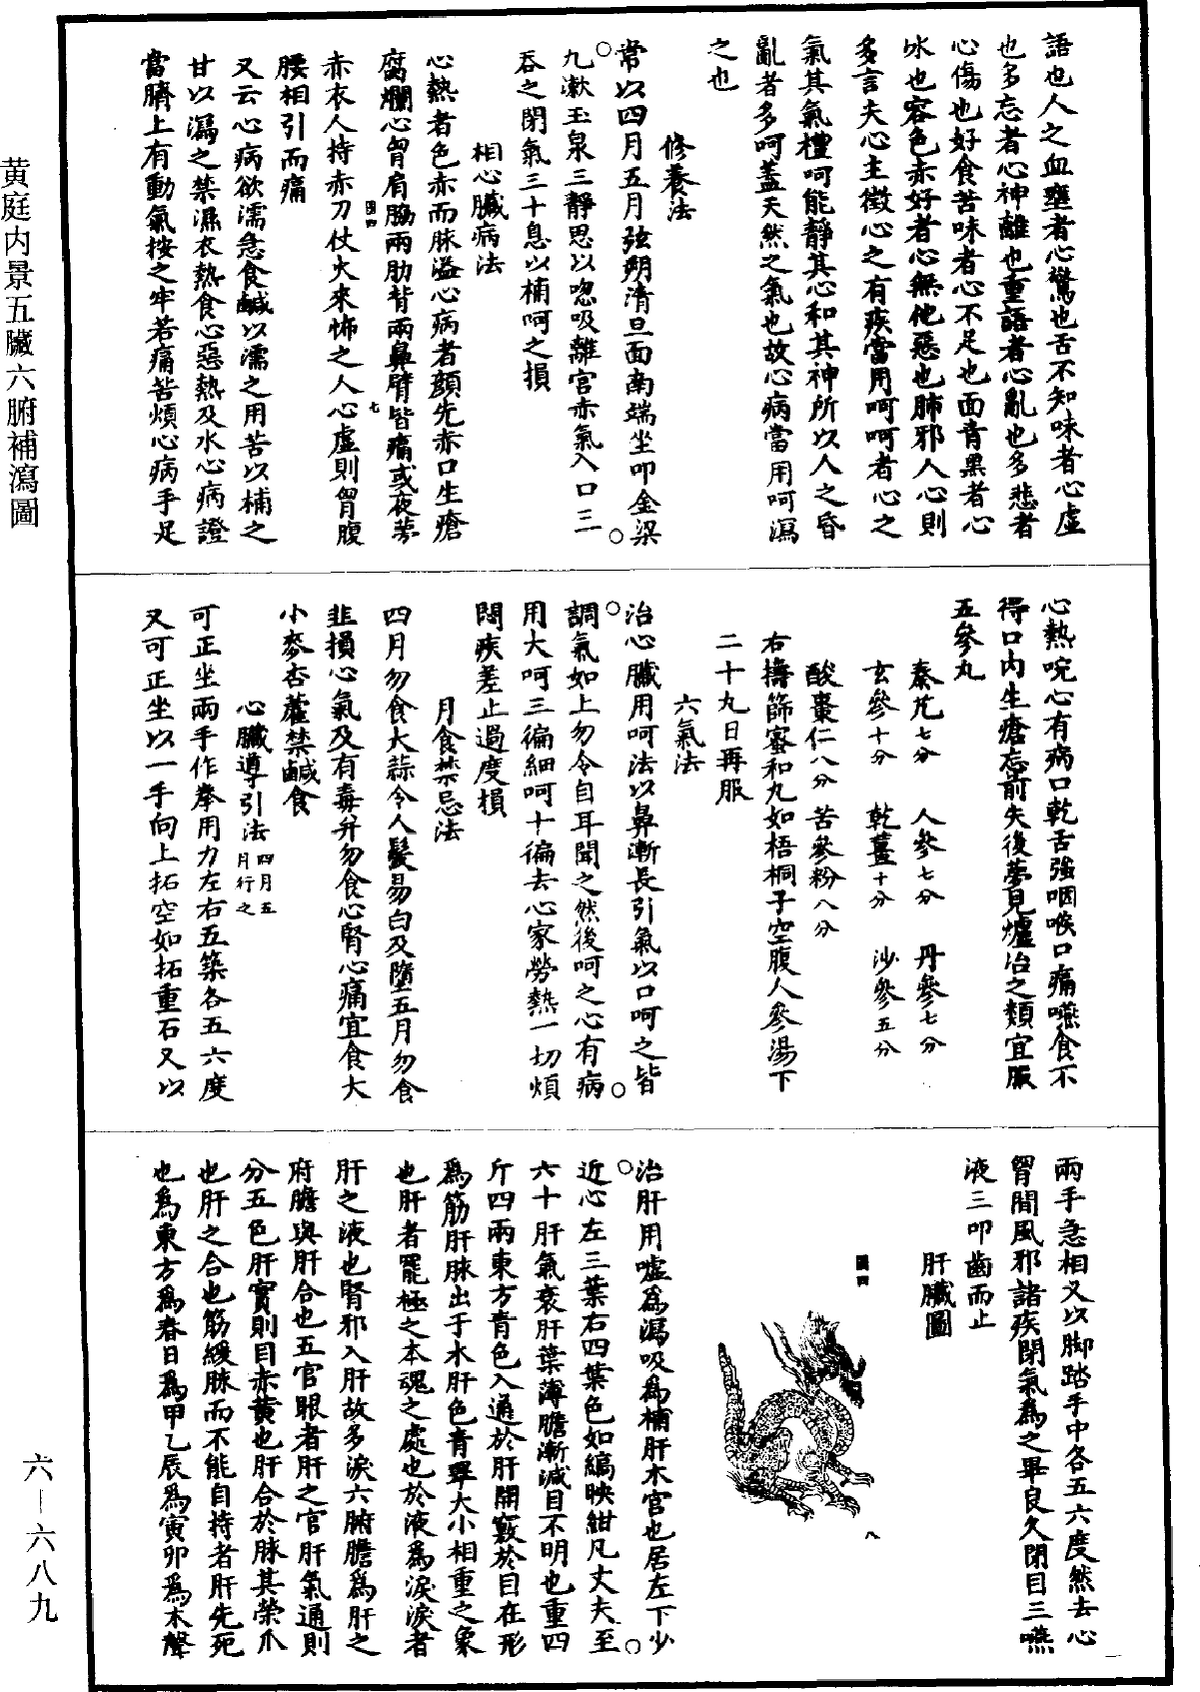 黄庭内景五臟六腑補瀉圖
六—六八九
語也人之血壅者心驚也舌不知味者心虛
也多忘者心神離也重語者心亂也多悲者
心傷也好食苦味者心不足也面青黑者心
冰也容色赤好者心無他惡也肺邪人心則
多言夫心主徵心之有疾當用呵呵者心之
氣其氣禮呵能靜其心和其神所以人之昏
亂者多呵蓋天然之氣也故心病當用呵瀉
之也
修養法
常以四月五月弦朔清旦面南端坐叩金梁
九漱玉泉三靜思以吻吸離宮赤氣入口三
吞之閉氣三十息以補呵之損
相心臟病法
心熱者色赤而脉溢心病者顏先赤口生瘡
腐爛心胷肩脇兩肋背兩鼻臂皆痛或夜夢
圖四
七
赤衣人持赤刀仗火來怖之人心虛則胷腹
腰相引而痛
又云心病欲濡急食鹹以濡之用苦以補之
甘以瀉之禁濕衣熱食心惡熱及水心病證
當臍上有動氣按之牢若痛苦煩心病手足
心熱啘心有病口乾舌強咽喉口痛嚥食不
得口內生瘡忘前失後夢見爐冶之類宜服
五參丸
秦艽七分 人參七分 丹參七分
玄參十分 乾薑十分 沙參五分
酸棗仁八分 苦參粉八分
右擣篩蜜和丸如梧桐子空腹人參湯下
二十九日再服
六氣法
治心臟用呵法以鼻漸長引氣以口呵之皆
調氣如上勿令自耳聞之然後呵之心有病
用大呵三徧細呵十徧去心家勞熱一切煩
悶疾差止過度損
月食禁忌法
四月勿食大蒜令人髮易白及墮五月勿食
韭損心氣及有毒并勿食心腎心痛宜食大
小麥杏藿禁鹹食
心臟導引法四月五月行之
可正坐兩手作拳用力左右五築各五六度
又可正坐以一手向上拓空如拓重石又以
兩手急相叉以脚踏手中各五六度然去心
胷間風邪諸疾閉氣為之畢良久閉目三嚥
液三叩齒而止
肝臟圖
圖四
八
治肝用噓為瀉吸為補肝木宮也居左下少
近心左三葉右四葉色如縞映紺凡丈夫至
六十肝氣衰肝葉薄膽漸減目不明也重四
斤四兩東方青色入通於肝開竅於目在形
為筋肝脉出于水肝色青翠大小相重之象
也肝者罷極之本魂之處也於液為淚淚者
肝之液也腎邪入肝故多淚六腑膽為肝之
府膽與肝合也五官眼者肝之官肝氣通則
分五色肝實則目赤黃也肝合於脉其榮爪
也肝之合也筋緩脉而不能自持者肝先死
也為東方為春日為甲乙辰為寅卯為木聲